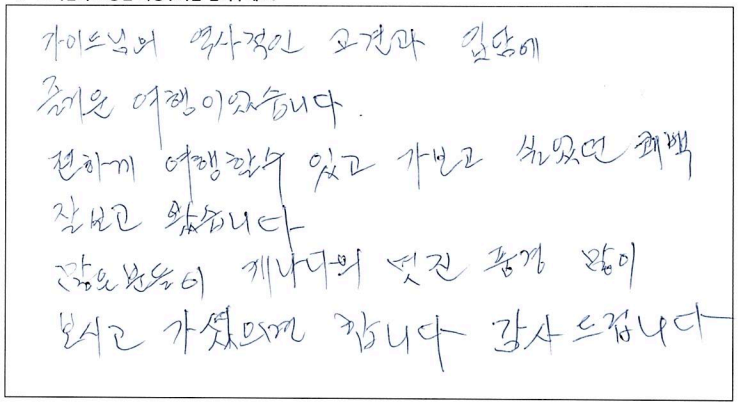 가이드님의 역사적인 고견과 입담에
즐거운 여행이었습니다.
편하게 여행할수 있고 가보고 싶었던 퀘백
잘보고 왔습니다
많은분들이 캐나다의 멋진 풍경 많이
보시고 가셨으면 합니다 감사드립니다